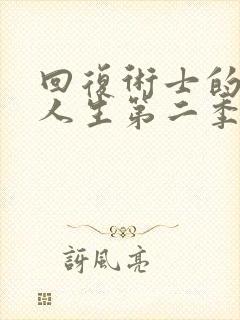 回復術士的
人生第二季
訝風亮